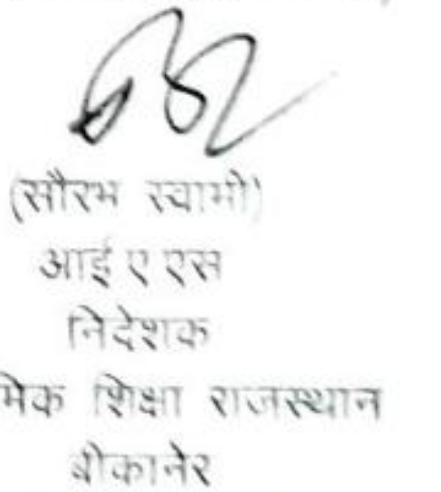 (सौरभ स्वामी)
आई ए एस
निदेशक
मिक शिक्षा राजस्थान
बीकानेर